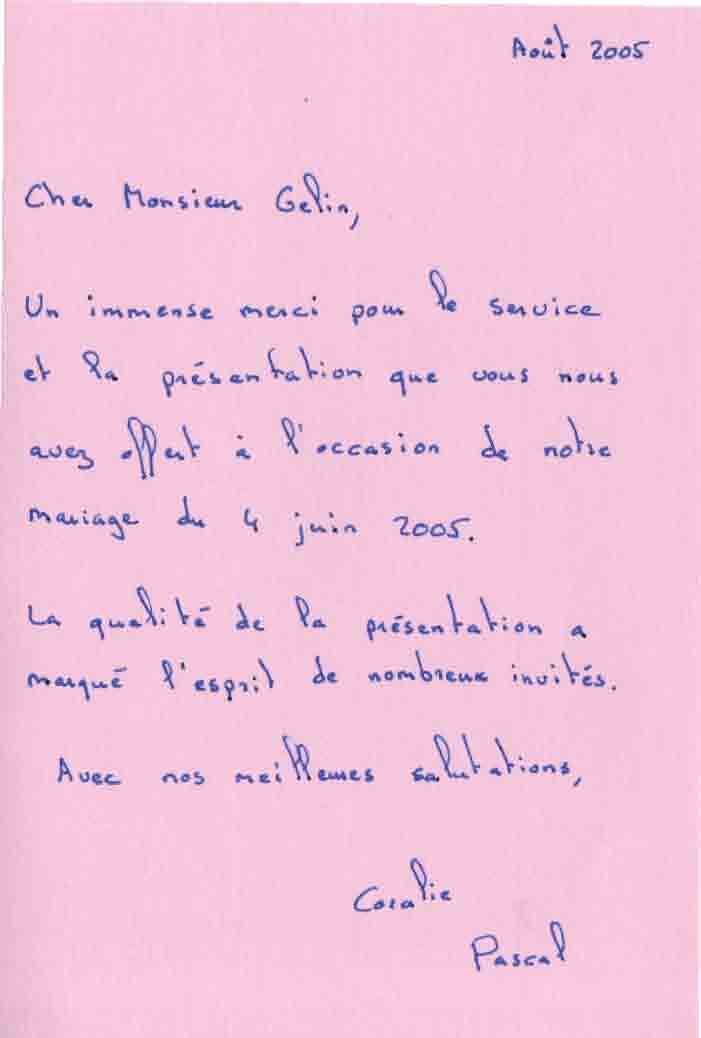 Août 2005
Cher Monsieur Gelin,
Un immense merci pour le service
et la présentation que vous nous
avez offert à l'occasion de notre
mariage du 4 juin 2005.
La qualité de la présentation a
marqué l'esprit de nombreux invités.
Avec nos meilleures salutations,
Coralie
Pascal